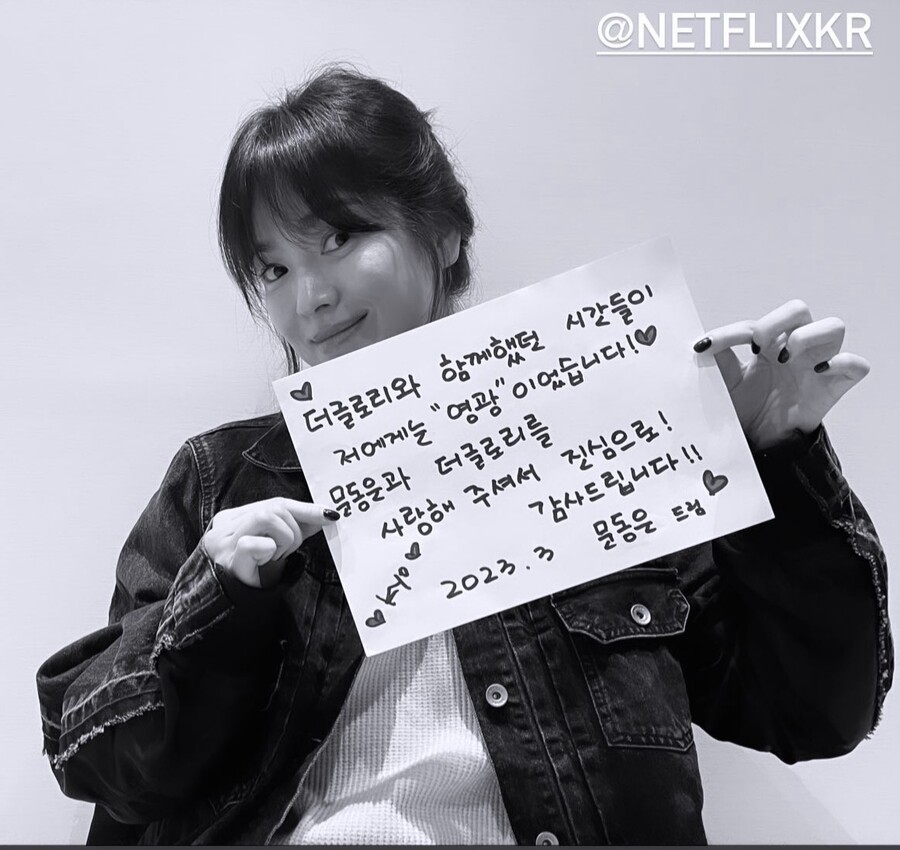 @NETFLIXKR
더글로리와 함께했던 시간들이
저에게는 "영광"이었습니다!♥
문동은과 더글로리를
사랑해 주셔서 진심으로!
감사드립니다!!
2023.3 문동은 드림